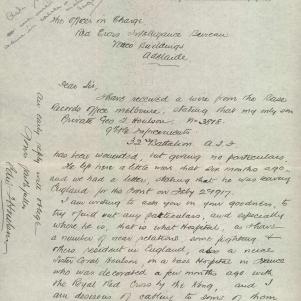 The Officer in Charge
Red Cross Intelligence Bureau
Weco Buildings
Adelaide
Dear Sir,
I have received a wire from the Base
Records Office Melbourne, stating that my only son
Private Geo S. Houlson
9th Reinforcements
32 Battalion A.I.F
has been wounded, but giving no particulars.
He left here a little more than six months ago
and we had a letter, stating that he was leaving
England for the Front on Feby 2nd 1917.
I am writing to ask you in your goodness, to
try & find out any particulars, and especially
where he is, that is what Hospital, as I have
a number of near relations, some fighting &
others resident in England, also a niece
Sister Coral Houlson, in a base Hospital in France
who was decorated a few months ago with
the Royal Red Cross by the King, and I
am desirous of cabling to some of them
An early reply will oblige
Yours faithfully